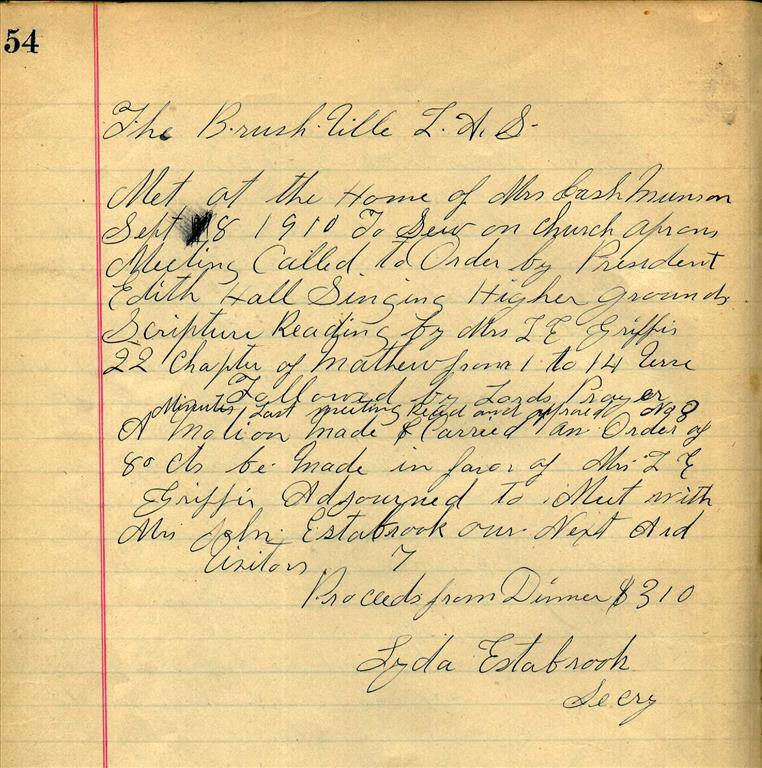 54
The Brush Ville L. A. S.
Met at the Home of Mrs Cash Munson
Sept 8 1910 To Sew on church aprons
Meeting Called to Order by President
Edith Hall Singing Higher Grounds
Scripture Reading by Mrs L E Griffis
22 Chapter of Mathew from 1 to 14 Verse
Followed by Lords Prayer
Minutes Last meeting Read and aproved No 8
A Motion made & Carried an Order of
80 cts be made in favor of Mrs L E
Griffis Adjourned to Meet with
Mrs John Estabrook our Next Aid
Visitors 7
Proceeds from Dinner $3 10
Lyda Estabrook
Secry